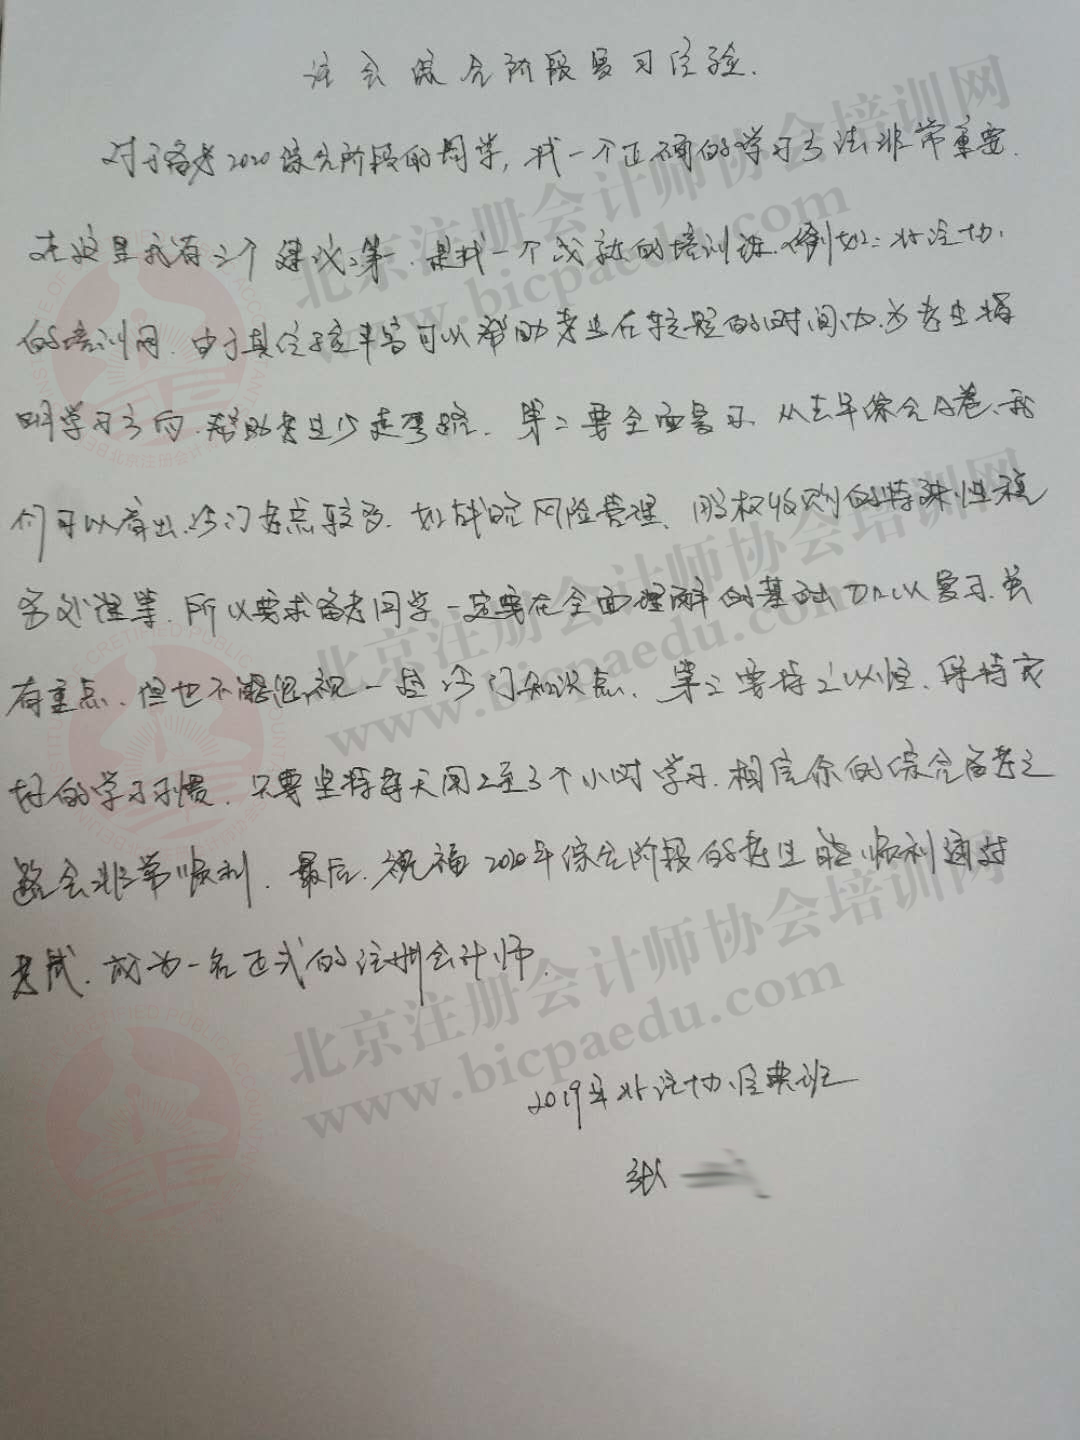 注会综合阶段复习经验.
对于备考2020综合阶段的同学,找一个正确的学习方法非常重要.
在这里我有三个建议:第一.是找一个成熟的培训班.例如:北注协.
的培训网.由于其经验丰富可以帮助考生在较短的时间内.为考生指
明学习方向.帮助考生少走弯路. 第二要全面复习.从去年综合A卷.我
们可以看出.冷门考点较多.如战略风险管理、股权收购的特殊性税
务处理等.所以要求备考同学一定要在全面理解的基础加以复习.会
有重点、但也不能忽视一些冷门知识点. 第三要持之以恒.保持良
好的学习习惯.只要坚持每天用2至3个小时学习.相信你的综合备考之
路会非常顺利. 最后.祝福2020年综合阶段的考生能顺利通过
考试.成为一名正式的注册会计师.
2019年北注协.经典班
张
北京注册会计师协会培训网
www.bicpaedu.com
北京注册会计师协会培训网
www.bicpaedu.com
北京注册会计师协会培训网
www.bicpaedu.com